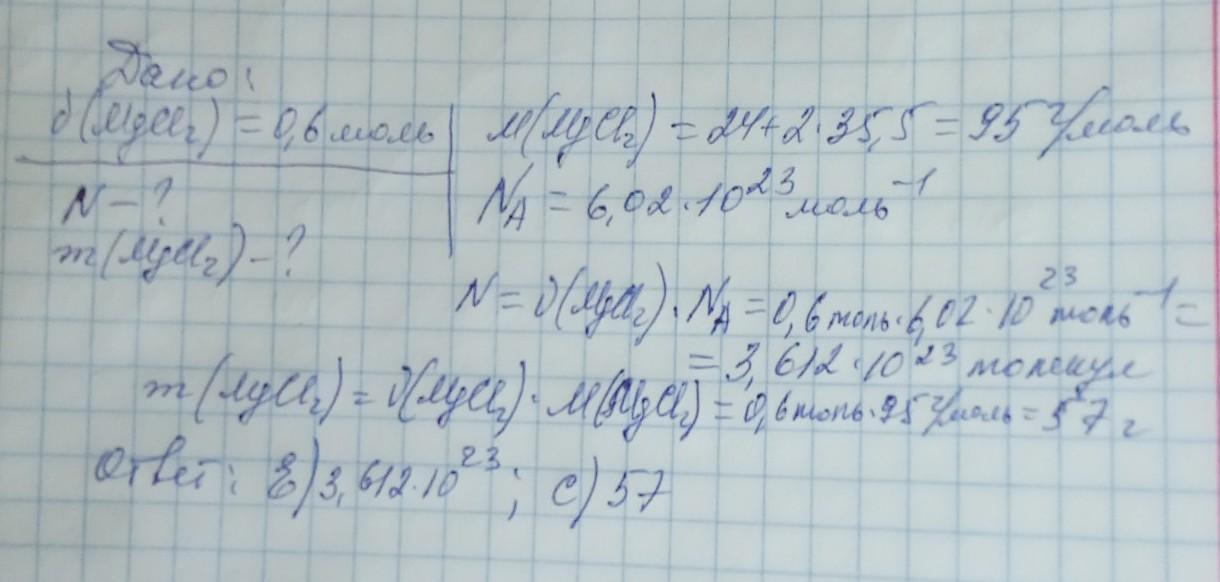 Дано:
ϑ(MgCl₂) = 0,6 моль
N – ?
m(MgCl₂) – ?
M(MgCl₂) = 24 + 2·35,5 = 95 г/моль
N_A = 6,02·10²³ моль⁻¹
N = ϑ(MgCl₂)·N_A = 0,6 моль·6,02·10²³ моль⁻¹ =
= 3,612·10²³ молекул
m(MgCl₂) = ϑ(MgCl₂)·M(MgCl₂) = 0,6 моль·95 г/моль = 57 г
Ответ: E) 3,612·10²³; C) 57